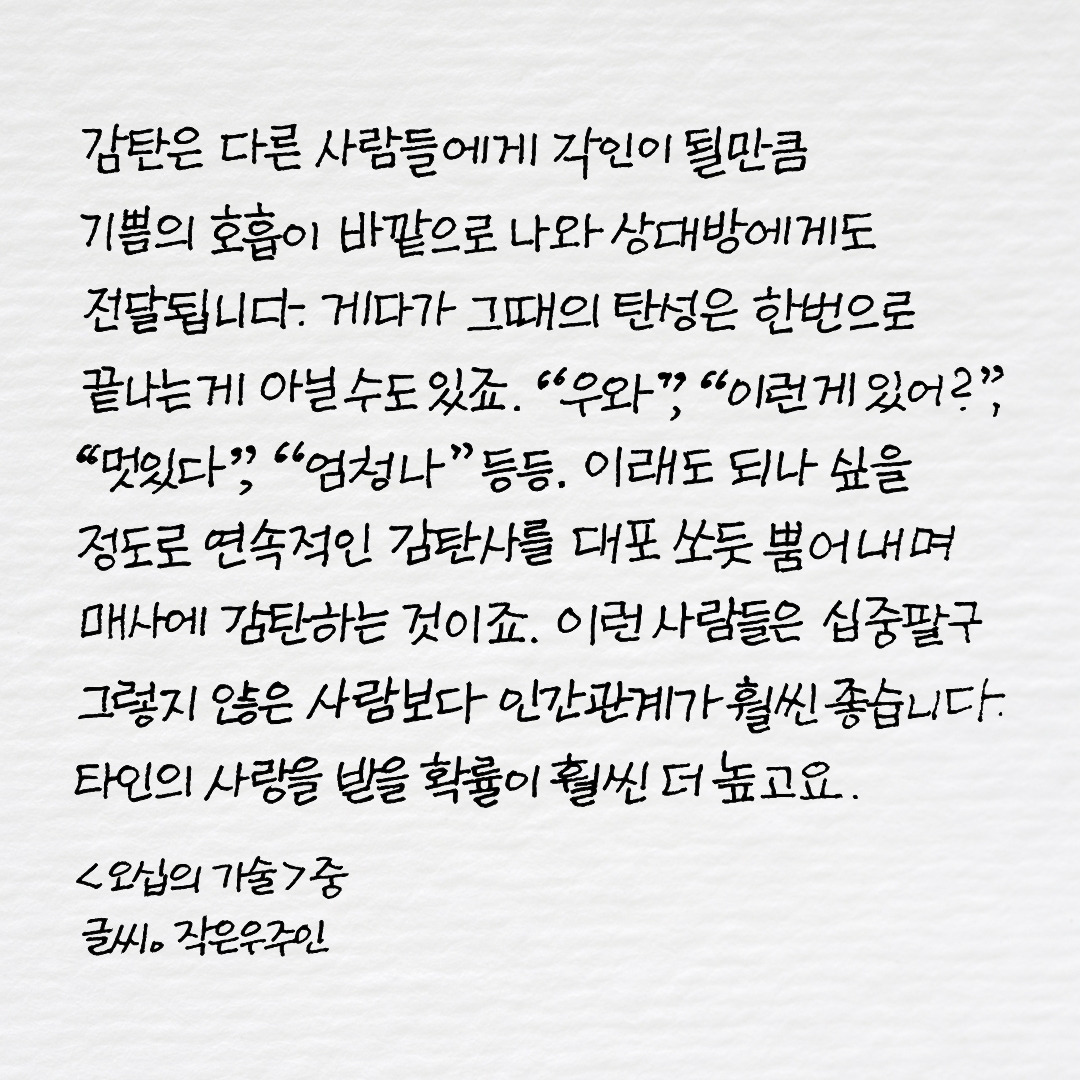 감탄은 다른 사람들에게 각인이 될만큼
기쁨의 호흡이 바깥으로 나와 상대방에게도
전달됩니다. 게다가 그때의 탄성은 한번으로
끝나는게 아닐수도 있죠. “우와”, “이런게 있어?”,
“멋있다”, “엄청나” 등등. 이래도 되나 싶을
정도로 연속적인 감탄사를 대포 쏘듯 뿜어내며
매사에 감탄하는 것이죠. 이런 사람들은 십중팔구
그렇지 않은 사람보다 인간관계가 훨씬 좋습니다.
타인의 사랑을 받을 확률이 훨씬 더 높고요.
<오십의 기술> 중
글씨。작은우주인